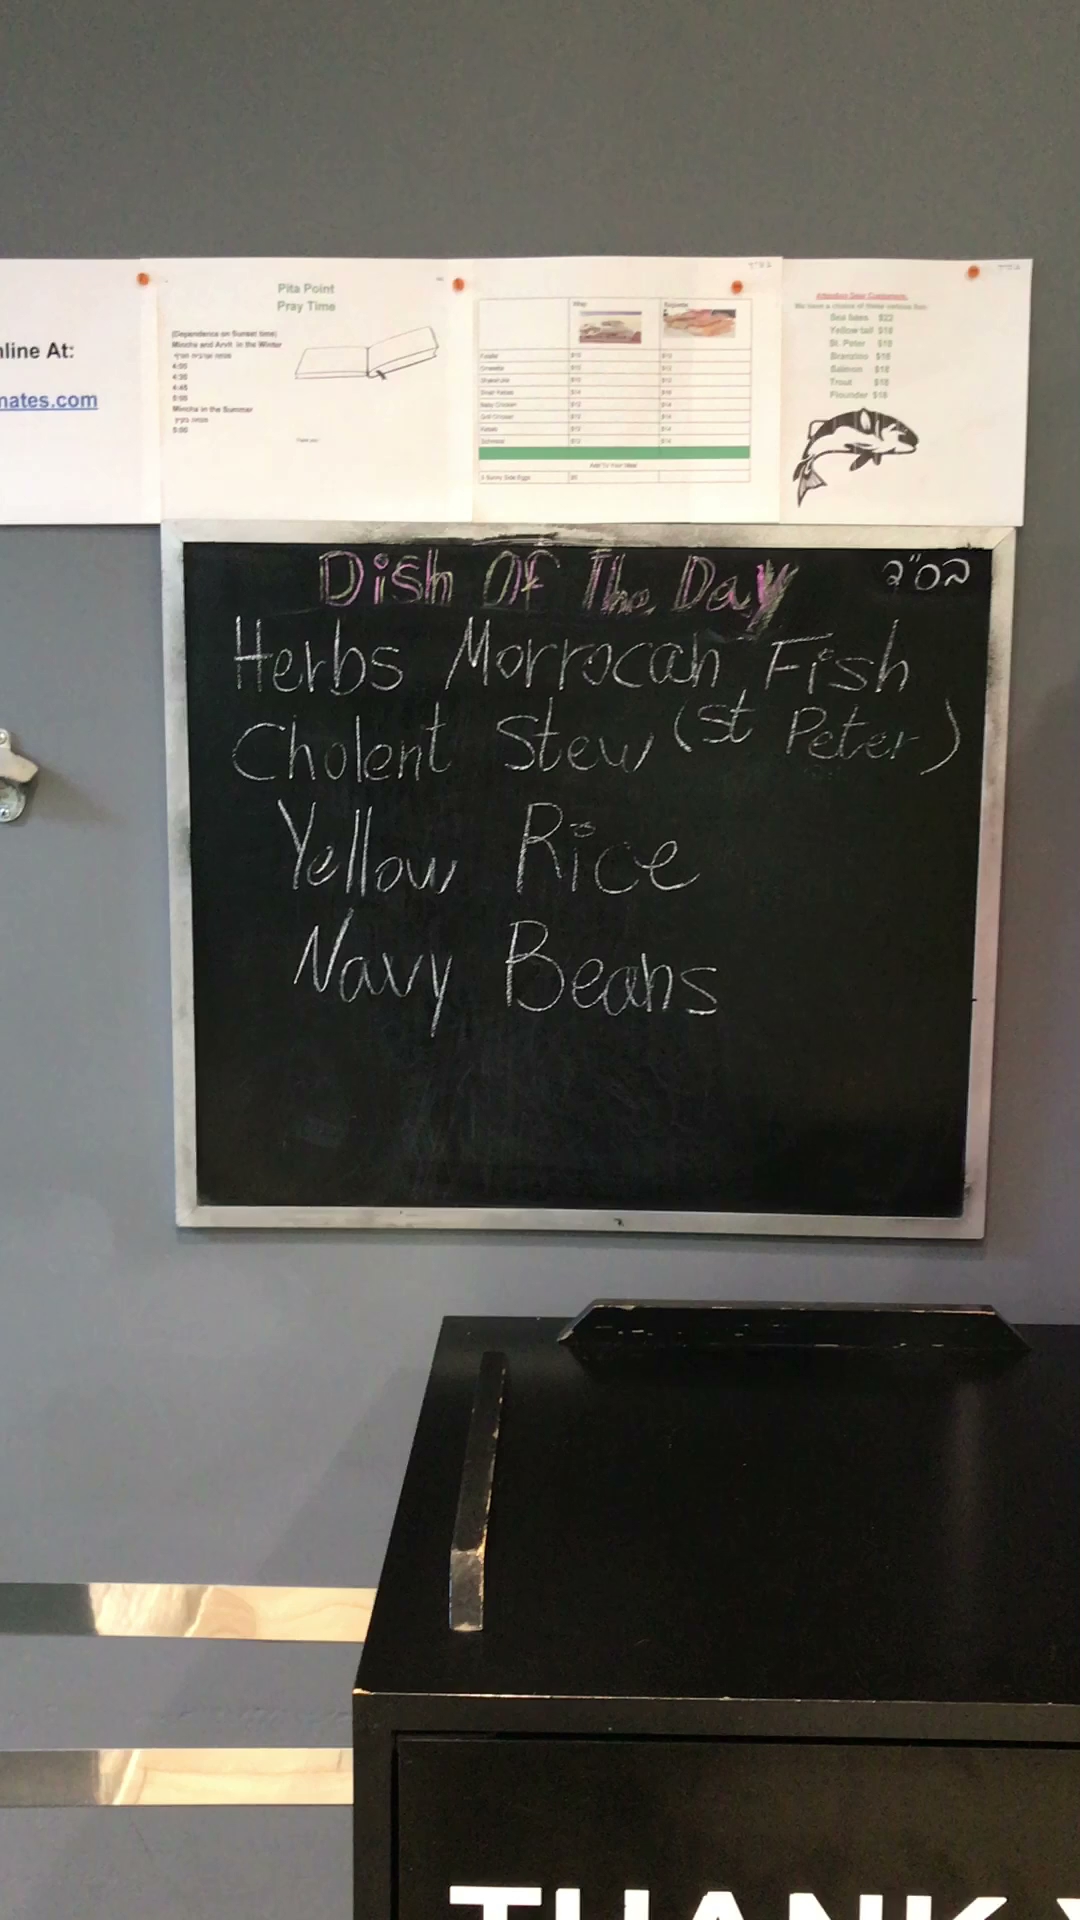 nline At:
mates.com
Pita Point
Pray Time
(Dependence on Sunset time)
Mincha and Arvit in the Winter
4:00
4:30
4:45
5:00
Mincha in the Summer
5:00
Thank you!
Wrap
Baguette
Falafel $10 $10
Omelette $10 $12
Shakshuka $10 $12
Baby Chicken $12 $14
Grill Chicken $12 $14
Kebab $12 $14
Schnitzel $12 $14
Add To Your Meal
3 Sunny Side Eggs
בס"ד
Attention Dear Customers,
We have a choice of these various fish:
Sea bass $22
Yellow tail $18
St. Peter $18
Branzino $18
Salmon $18
Trout $18
Flounder $18
Dish Of The Day
בס"ד
Herbs Morrocan Fish
Cholent Stew (St Peter)
Yellow Rice
Navy Beans
THANK